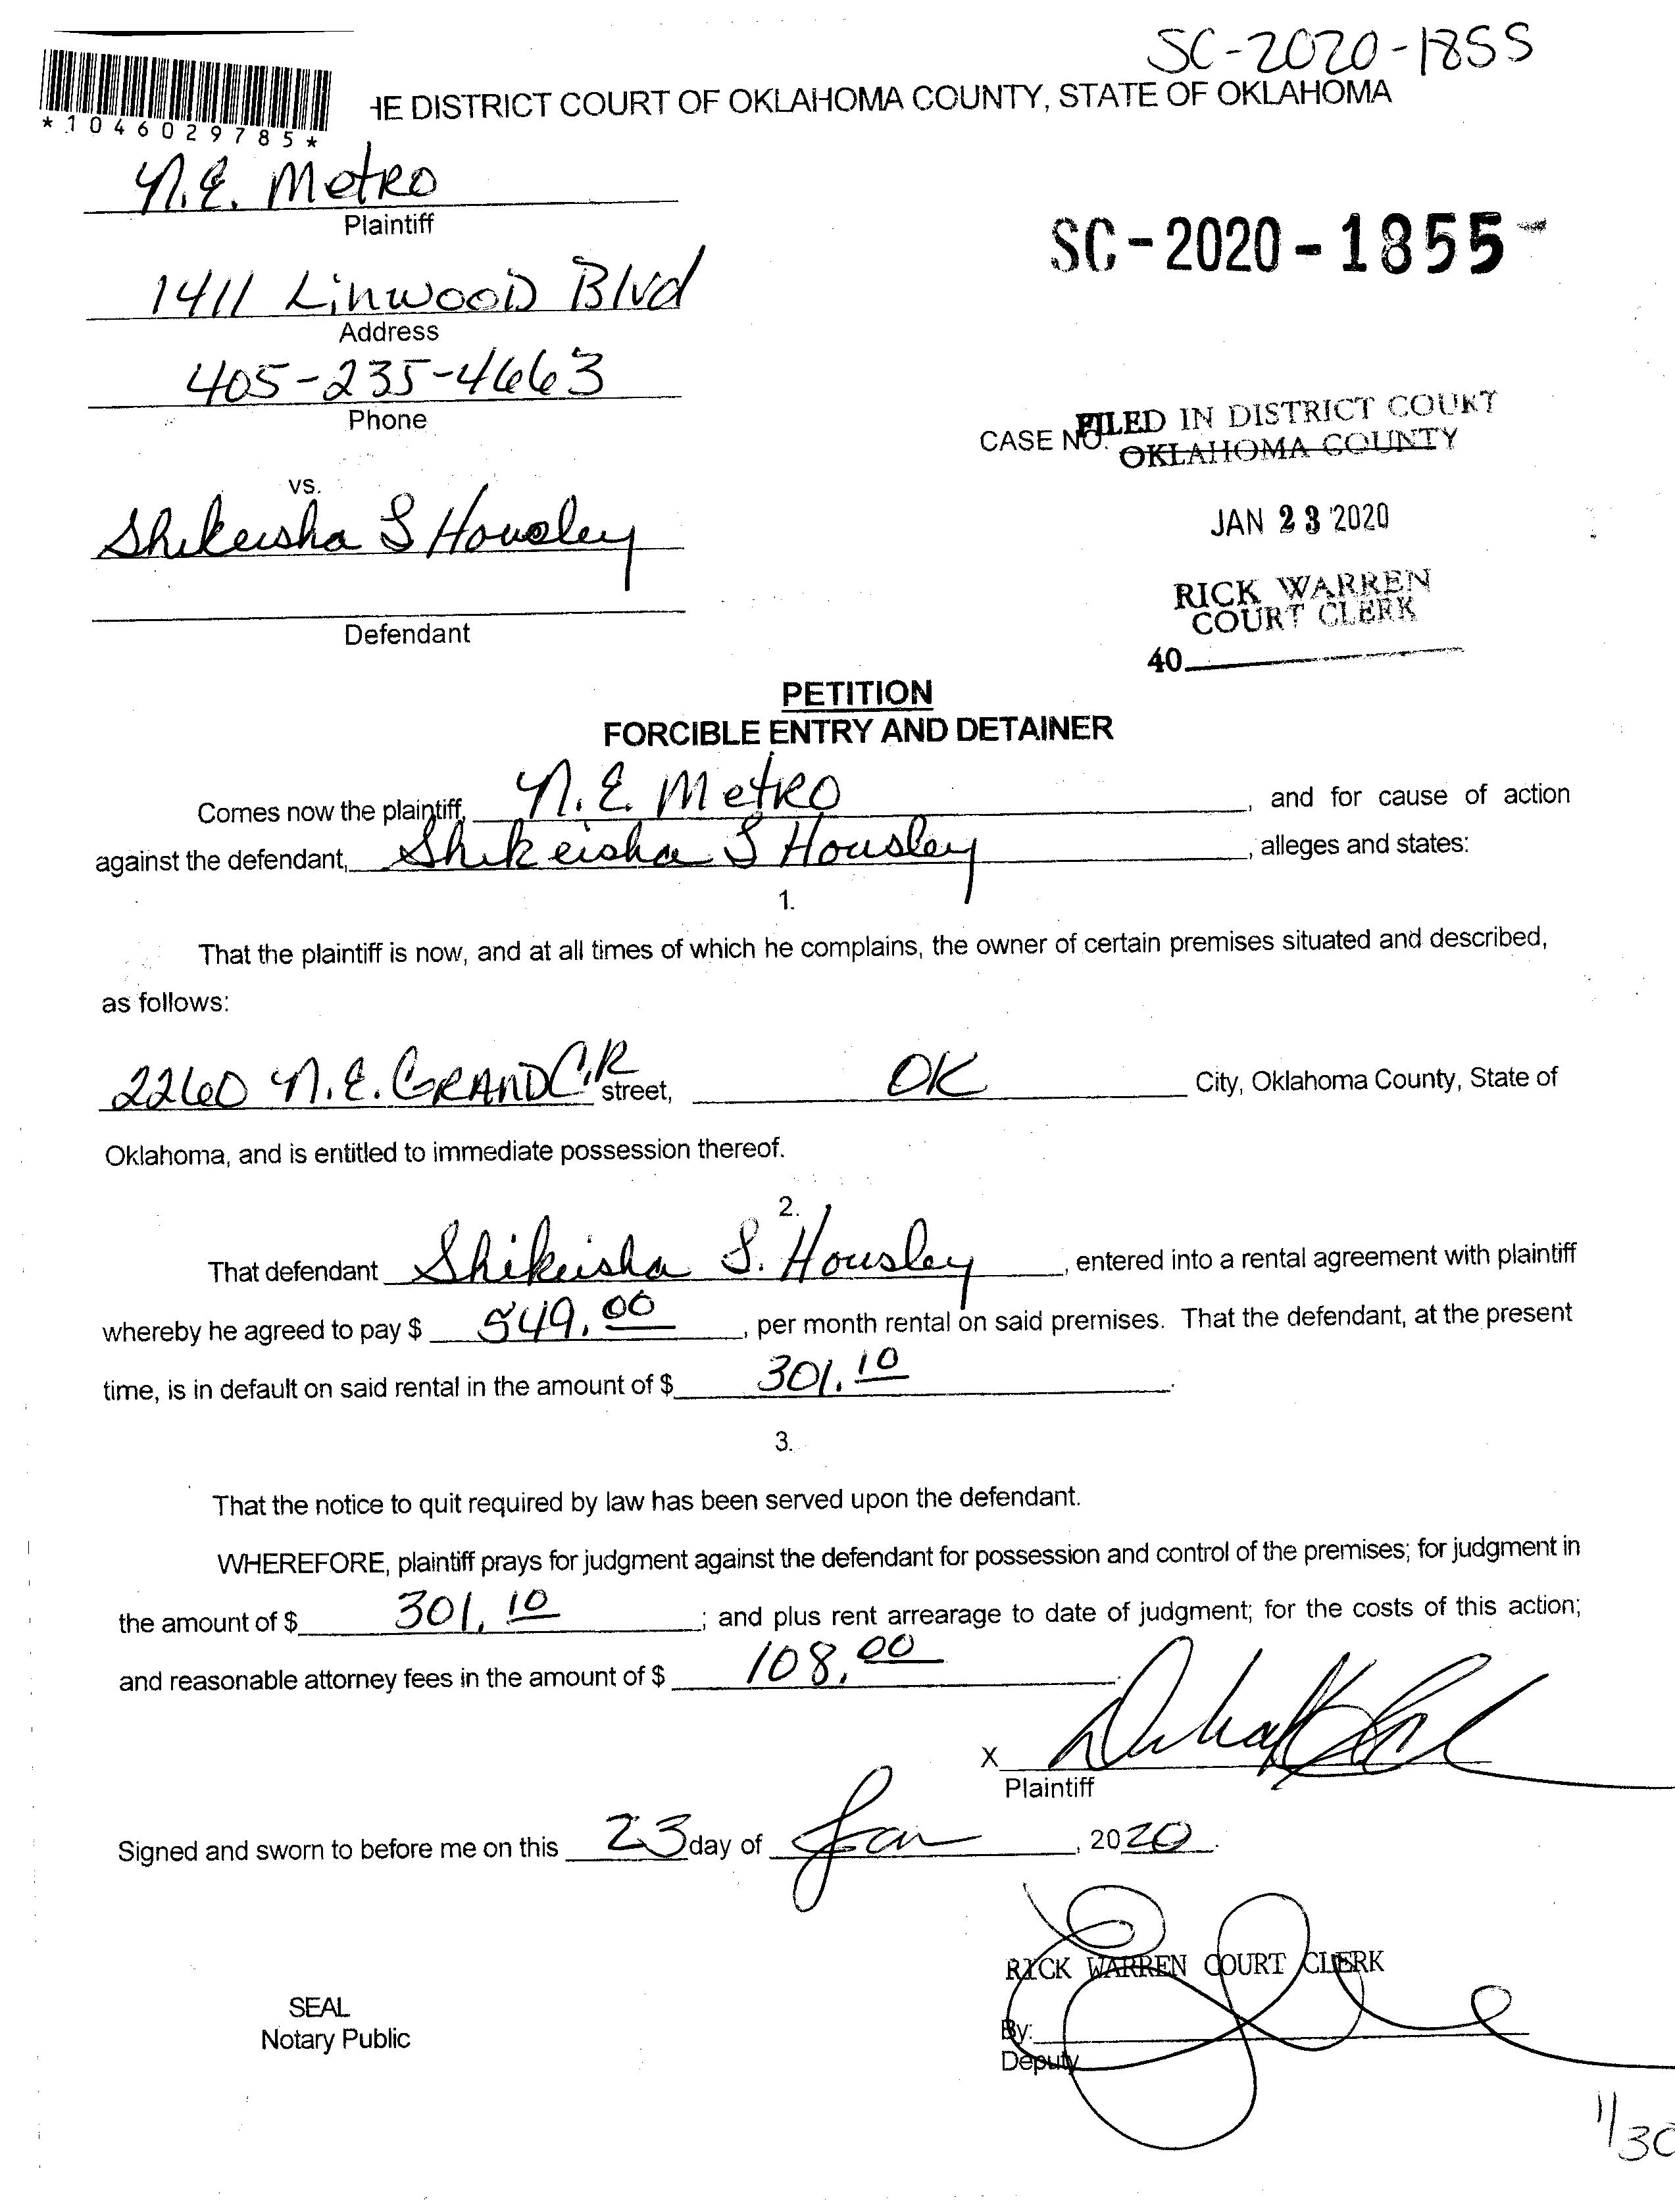 SC-2020-1855
HE DISTRICT COURT OF OKLAHOMA COUNTY, STATE OF OKLAHOMA
*1046029785*
N.E. Metro
Plaintiff
SC-2020-1855
1411 Linwood Blvd
Address
405-235-4663
Phone
FILED IN DISTRICT COURT
CASE NO. OKLAHOMA COUNTY
vs.
Shikeisha S Housley
JAN 23 2020
RICK WARREN
COURT CLERK
Defendant
40
PETITION
FORCIBLE ENTRY AND DETAINER
Comes now the plaintiff, N.E. Metro, and for cause of action
against the defendant, Shikeisha S Housley, alleges and states:
1.
That the plaintiff is now, and at all times of which he complains, the owner of certain premises situated and described,
as follows:
2260 N.E. GRAND CIR street, OK City, Oklahoma County, State of
Oklahoma, and is entitled to immediate possession thereof.
2.
That defendant Shikeisha S. Housley, entered into a rental agreement with plaintiff
whereby he agreed to pay $ 549.00, per month rental on said premises. That the defendant, at the present
time, is in default on said rental in the amount of $ 301.10.
3.
That the notice to quit required by law has been served upon the defendant.
WHEREFORE, plaintiff prays for judgment against the defendant for possession and control of the premises; for judgment in
the amount of $ 301.10; and plus rent arrearage to date of judgment; for the costs of this action;
and reasonable attorney fees in the amount of $ 108.00.
X
Plaintiff
Signed and sworn to before me on this 23 day of Jan, 2020.
RICK WARREN COURT CLERK
SEAL
Notary Public
By:
Deputy
1/30